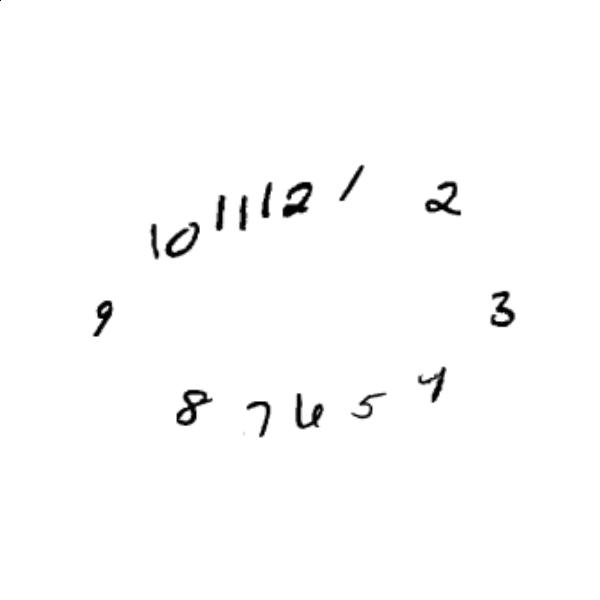 10 11 12 1 2
9 3
8 7 6 5 4